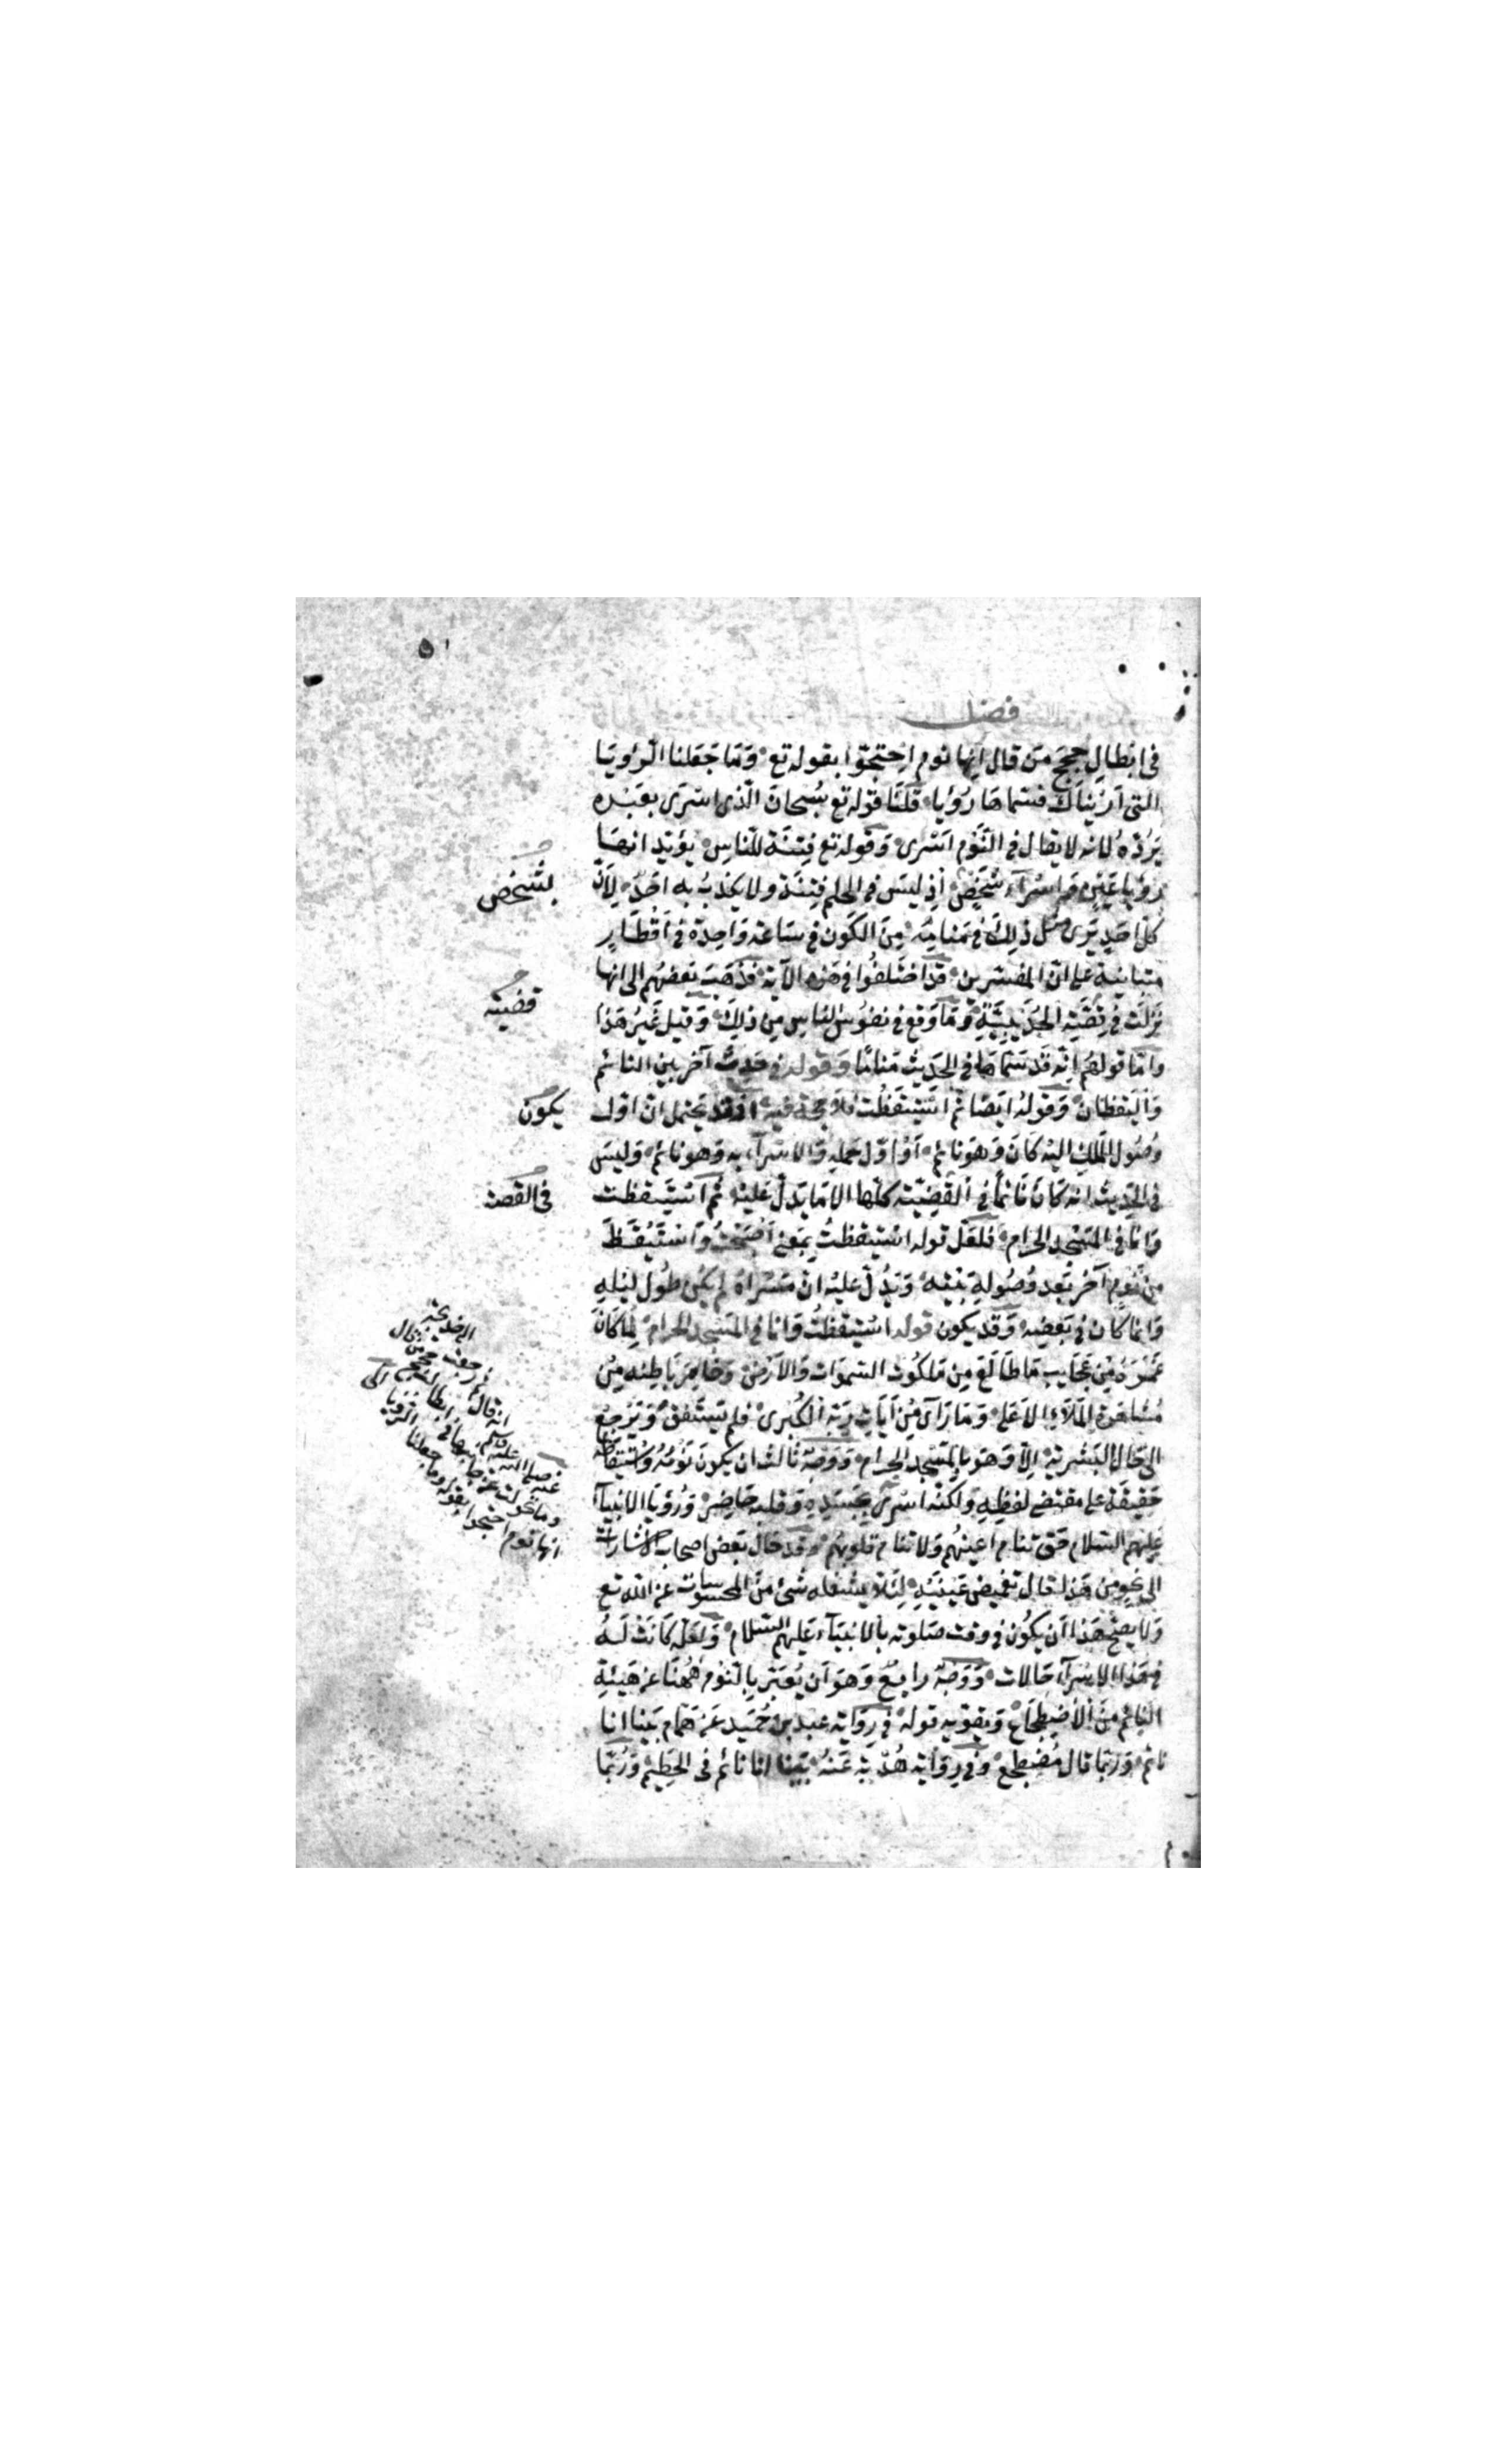 ٥١
فصل
في ابطالِ حججَ مَن قال انها نوم احتجّوا بقوله تع وَمَا جَعَلنا الرُّؤيَا
التي اَرَيْناكَ فسَمّاهَا رُؤيا قلنَا قوله تع سُبحانَ الّذى اسْرَى بعَبْدِه
يَرُدّه لانه لا يقال في النَّوْم اَسْرى وَقوله تع فِتنَة للنّاسِ يؤيّد انهَا
رؤيا عَيْنٍ وَاِسْرآء شَخْصٍ اِذ ليسَ في الحلم فِتنَة ولا يكذبُ به اَحَدٌ لِاَنَّ
كلّ احَدٍ يَرى مثل ذلِكَ في مَنامِه مِنَ الكَون في سَاعة وَاحِدَة في اَقْطَارٍ
متباينة على انّ المفسّرين قد اختَلفُوا في هَذه الآية فذهَبَ بَعضهُم الى انها
نَزَلَت في قضيّة الحُدَيبيَّةِ وَمَا وَقع في نفوُس الناسِ مِن ذلِكَ وَقيل غَيرُ هَذا
وامّا قولهُم اِنّه قَد سَمّاهَا في الحَدِيث مَنامًا وَقوله في حَدِيث آخر بين النائم
وَاليَقظان وَقولهُ ايضًا ثم اسْتَيْقَظْت فلا حجة فيه اذ قد يحتمل انّ اوّل
وُصُول المَلكِ اليْه كانَ وَهوَ نائم اَوْ اوّل حَملِه وَالاسْرآء به وَهو نائم وَليسَ
في الحَدِيث انه كانَ نَائماً في القضِيّة كلّها الا مَا يَدلّ عَليْه ثم اسْتَيقظت
وَانَا في المَسْجِد الحرَام فلعَلّ قوله استيقظتُ بمَعنى اَصْبَحْتُ وَاسْتَيْقَظَ
مِن نَّوم آخر بَعد وُصُولِهِ بَيْتَهُ وَيَدُلّ عليْه انّ مَسْرَاهُ لم يَكُن طُول ليْلِهِ
وَانّما كان في بَعضِه وَقد يَكون قوله استيقظتُ وَانا في المَسجد الحرَام لِمَا كانَ
غمَرَهُ مِن عَجَايبِ مَا طَالَعَ مِن مَلكُوت السّموَات وَالاَرْض وَخَامَرَ بَاطِنه مِنْ
مُشاهَدَة المَلاءِ الاعَلى وَمَا رَآى مِنْ آيَاتِ رَبّه الكُبرى فلم يَستَفِقْ وَيَرْجِعُ
الى حَالِ البَشَريّة اِلاّ وَهوَ بالمَسْجد الحرَام وَوَجهٌ ثالثٌ ان يَكونَ نَوْمُهُ وَاستيقاظه
حَقيقَة على مقتضى لفظِهِ وَلكنّه اسْرىَ بجَسَدِهِ وَقلبه حَاضِر وَرُؤيَا الانبيآء
عليهم السّلام حَق تنام اعينهُم وَلا تنام قلوبُهُم وقد مَال بَعض اصحَاب الاشارَات
الى نحوٍ مِن هَذا قال تغميض عَيْنَيْهِ لِئلا يشغله شَئ مِنَ المحسُوسَات عَن الله تع
وَلا يصحّ هَذا اَن يَكُون في وقت صَلوته بالانبيَآء عَليهم السّلام وَلعَلّه كَانَتْ لَهُ
في هَذا الاِسْرآء حَالات وَوَجهٌ رابع وَهوَ اَن يُعبّرَ بِالنّوم هٰهُنا عَن هَيئةِ
النّائم مِنَ الاضطِجَاع وَيُقوّيه قوله في رِوَاية عبد بن حُمَيد عَن هَمّام بَينا انا
نائم وَرُبّما قال مُضطجع وَفي رِوَاية هُدْبة عَنهُ بَيْنا انا نائم في الحَطِيم وَرُبّما
بشَخصٍ
قضيّة
يكون
في القصة
انها نوم احتجوا بقوله وما جعلنا الرؤيا